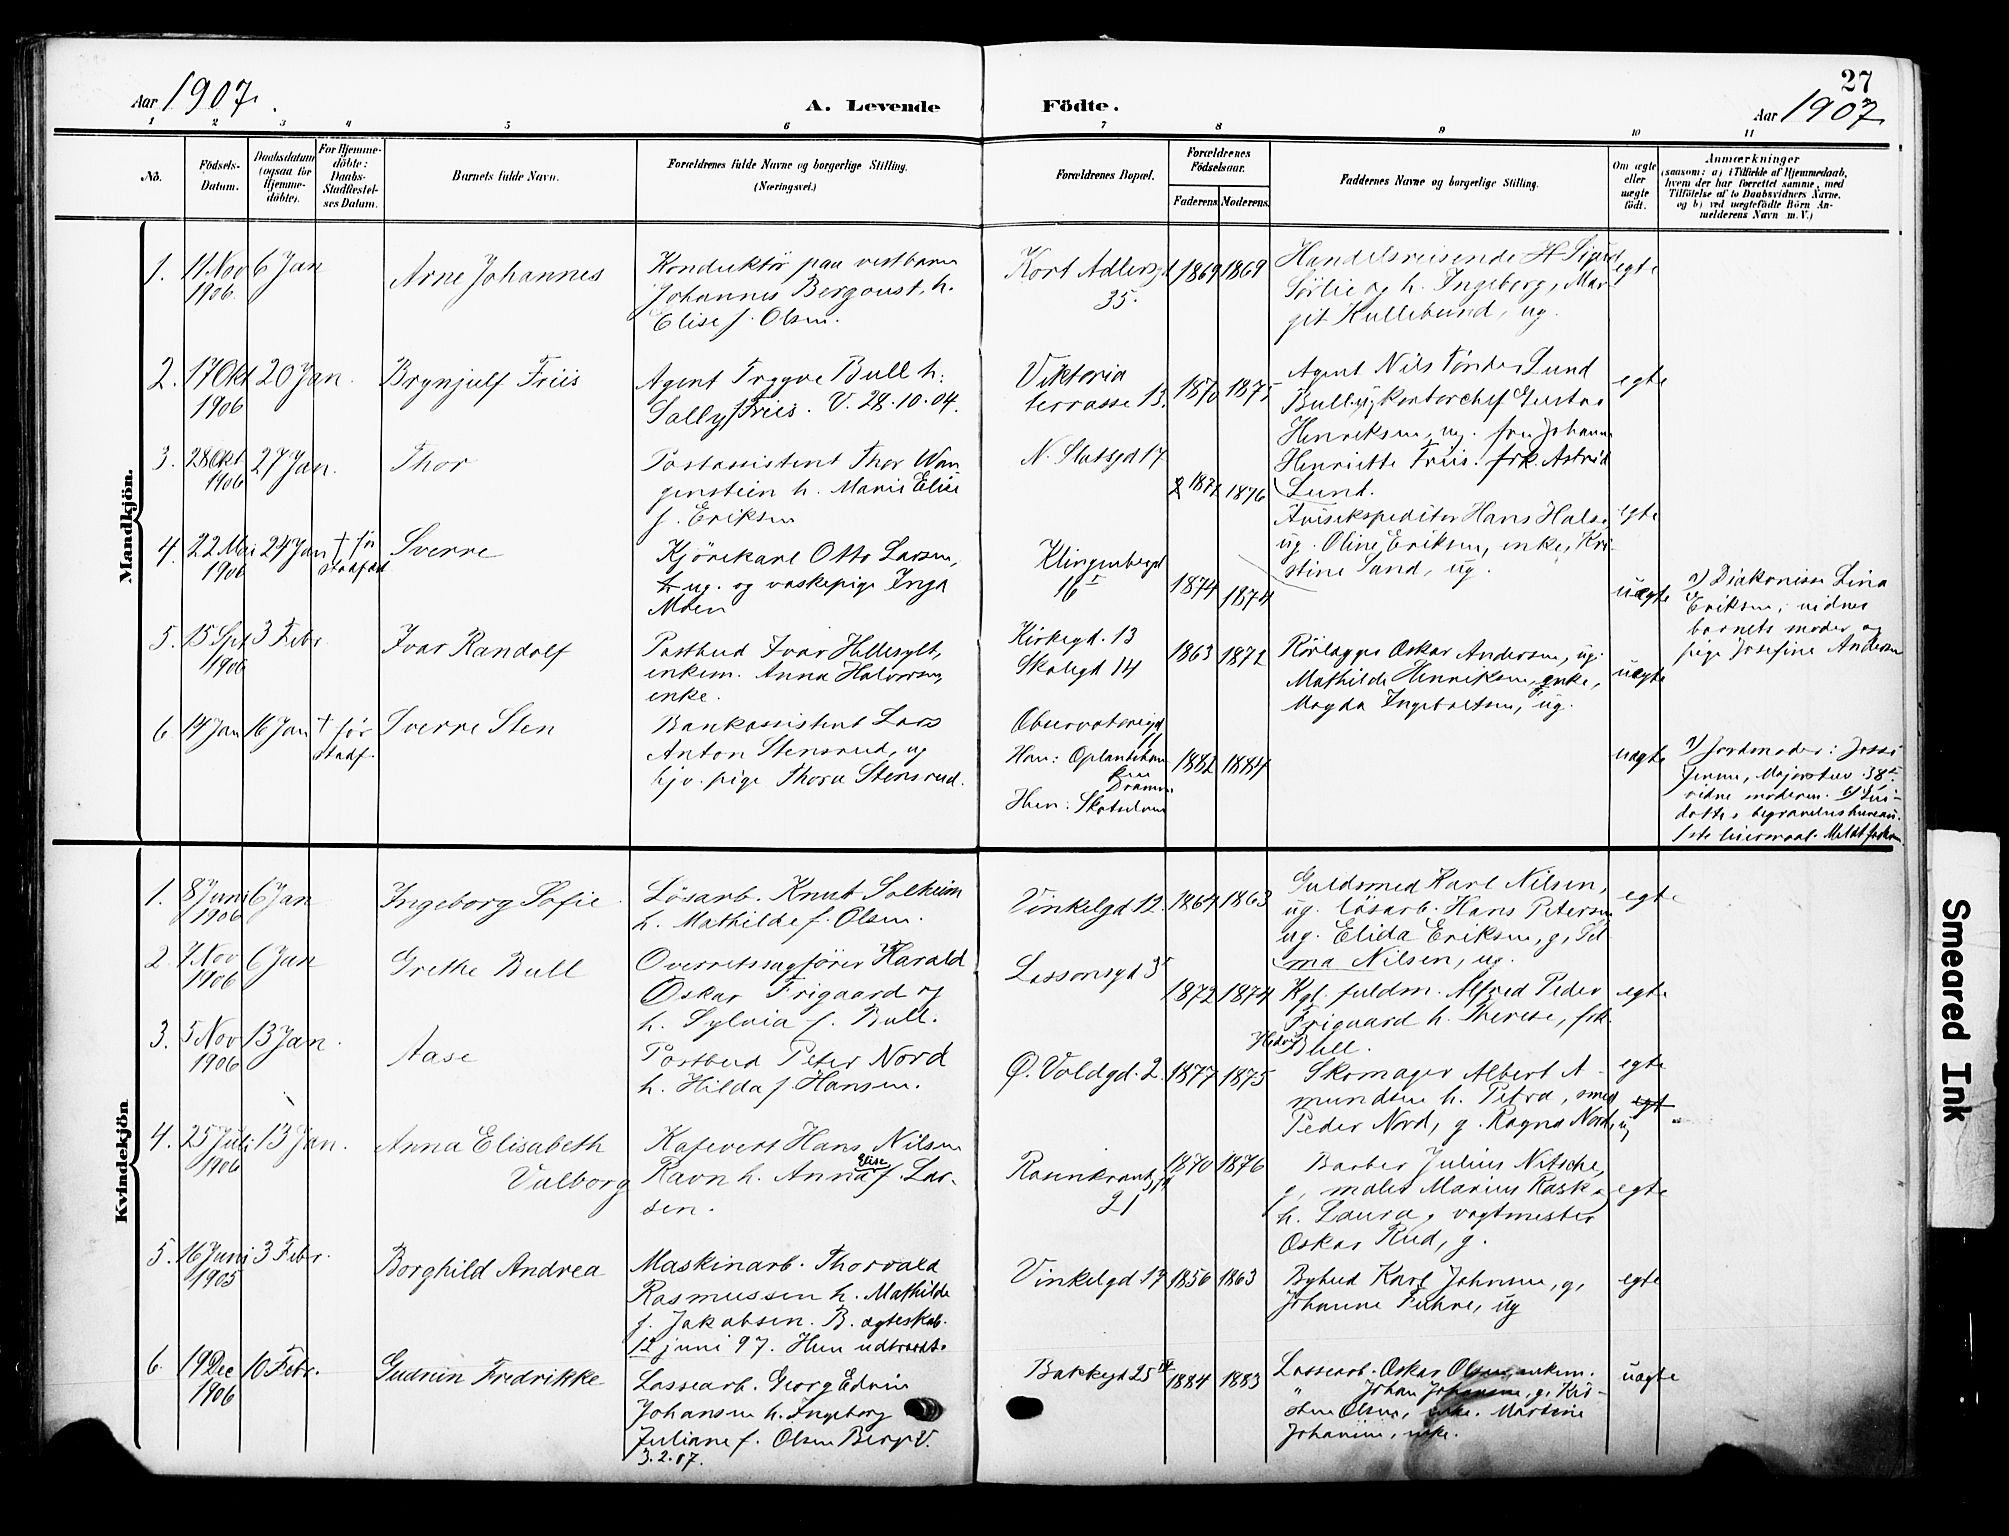 27
Aar 1907.
A. Levende
Födte.
Aar 1907
1 2 3 4 5 6 7 8 9 10 11
No.
Födsels-Datum.
Daabsdatum (ogsaa for Hjemmedöbte).
For Hjemmedöbte: Daabs-Stadfæstelses Datum.
Barnets fulde Navn.
Forældrenes fulde Navne og borgerlige Stilling.
(Næringsvei.)
Forældrenes Bopæl.
Forældrenes Födselsaar.
Faderens. Moderens.
Faddernes Navne og borgerlige Stilling.
Om ægte eller uægte födt.
Anmærkninger
(saasom: a) i Tilfælde af Hjemmedaab,
hvem der har forrettet samme, med
Tilföielse af to Daabsvidners Navne,
og b) ved uægtefödte Börn An-
melderens Navn m. V.)
Mandkjön.
1. 11 Nov 1906. 6 Jan
Arne Johannes
Konduktör paa vestbanen
Johannes Bergqust, h.
Elise f. Olsen.
Kort Adlersgd
35.
1869 1869
Handelsreisende H Sigurd
Sörlie og h. Ingeborg, Mar-
git Kullebund, ug.
egte
2. 17 Okt 1906 20 Jan.
Brynjulf Friis
Agent Trygve Bull h.
Sally f Friis. V. 28.10.04.
Viktoria
terrasse 13.
1870 1875
Agent Nils Tönder Lund
Bull, ug kontorchef Gustav
Henriksen, ug. fru Johanne
Henriette Friis. frk. Astrid
Lund.
egte
3. 28 Okt 1906 27 Jan.
Thor
Postassistent Thor Wan
genstein h. Marie Elise
f. Eriksen
N. Slotsgd 17
1872 1876
Avisekspeditor Hans Hals,
ug. Oline Eriksen, enke, Kri-
stine Sand, ug.
egte
4. 22 Mai 1906 24 Jan † før stadfæd
Sverre
Kjörekarl Otto Larsen,
ug. og vaskepige Inga
Moen
Klingenbergd
16 I
1874 1874
uægte
a) Diakonisse Lina
Eriksen, vidner
barnets moder og
pige Josefine Andersen
5. 15 Spt 1906 3 Febr.
Ivar Randolf
Postbud Ivar Hellesylt,
enkem. Anna Halvorsen,
enke.
Kirkegd. 13
Skolegd 14
1863 1872
Rörlægger Oskar Andersen, ug.
Mathilde Henriksen, enke,
Magda Ingebretsen, ug.
uægte
6. 14 Jan 16 Jan † før Stadf.
Sverre Sten
Bankassistent Lars
Anton Stensrud, ug
hjv. pige Thora Stensrud.
Observatoriegd
11
Han: Oplandshau
gen
Dramm
Hun: Skotselven
1882 1884
uægte
a) Jordmoder: Josse
Jenne, Majorstuv. 38
vidne moderen.
begravelsesbureau.
1ste leiermaal. Meldt fadren
Kvindekjön.
1. 8 Juni 1906 6 Jan
Ingeborg Sofie
Lösarb. Knut Solheim
h. Mathilde f. Olsen.
Vinkelgd 12.
1864 1863
Guldsmed Karl Nilsen,
ug. lösarb. Hans Petersen
ug. Elida Eriksen, g, Pel
ma Nilsen, ug.
egte
2. 7 Nov 1906 6 Jan
Grethe Bull
Overretssagförer Harald
Oskar Frigaard og
h. Sylvia f. Bull.
Lassonsgd 5
1872 1874
Kgl. fuldm. Alfred Peder
Frigaard h. Therese, frk.
Hedvig Bull.
egte
3. 5 Nov 1906 13 Jan.
Aase
Postbud Peter Nord
h. Hilda f Hansen.
Ø. Voldgd. 2
1877 1875
Skomager Albert A-
mundsen h. Petra, smed
Peder Nord, g. Ragna Nord, ug
egte
4. 25 Juli 1906 13 Jan.
Anna Elisabeth
Valborg
Kafevert Hans Nilsen
Ravn h. Anna Elise f. Lar-
sen.
Rosenkrantzgd
21
1870 1876
Barber Julius Nitsche,
g, maler Marius Rask,
h. Laura, vagtmester
Oskar Rud, g.
egte
5. 16 Juni 1905 3 Febr.
Borghild Andrea
Maskinarb. Thorvald
Rasmussen h. Mathilde
f. Jakobsen. B. ægteskab.
12 juni 97. Hun udtraadt.
Vinkelgd 17
1856 1863
Bybud Karl Johnsen, g,
Johanne Fuhre, ug
egte
6. 19 Dec 1906 10 Febr.
Gudrun Fredrikke
Lossearb. Georg Edvin
Johansen h. Ingeborg
Juliane f. Olsen Berg. V.
3.2.07.
Bakkegd 25
1884 1883
Lossearb. Oskar Olsen, enkem.
" Johan Johansen, g, Kri-
stine Olsen, enke. Martine
Johanne, enke.
uægte
Smeared Ink